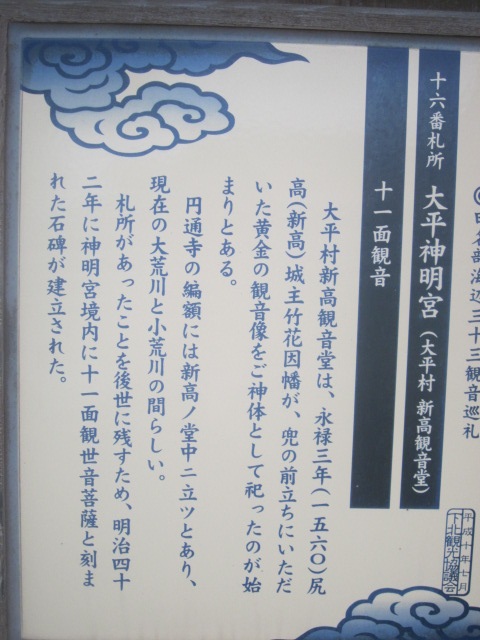 田名部海辺三十三観音巡礼
十六番札所 大平神明宮(大平村 新高観音堂)
十一面観音
大平村新高観音堂は、永禄三年(一五六〇)尻
高(新高)城主竹花因幡が、兜の前立ちにいただ
いた黄金の観音像をご神体として祀ったのが始
まりとある。
円通寺の編額には新高ノ堂中ニ立ツとあり、
現在の大荒川と小荒川の間らしい。
札所があったことを後世に残すため、明治四十
二年に神明宮境内に十一面観世音菩薩と刻ま
れた石碑が建立された。
平成十年七月
下北観光協議会